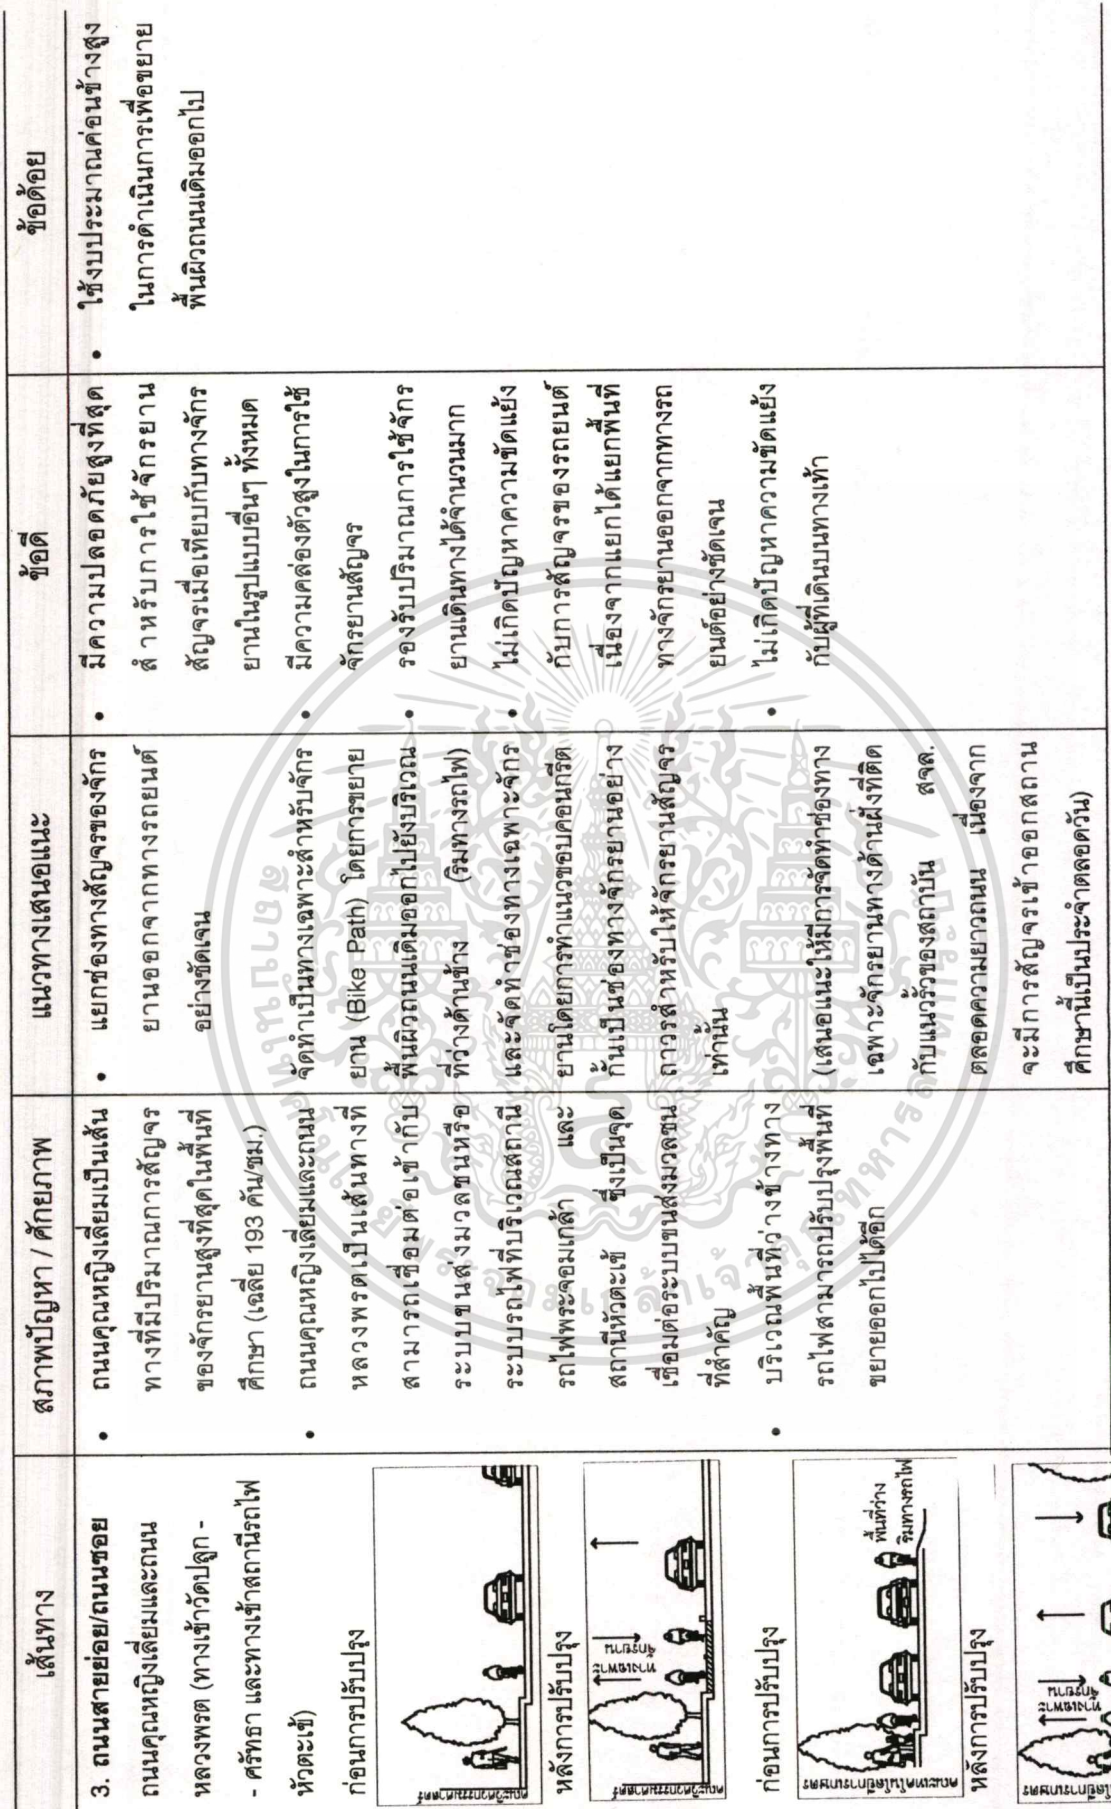 เส้นทาง
สภาพปัญหา / ศักยภาพ
แนวทางเสนอแนะ
ข้อดี
ข้อด้อย
3. ถนนสายย่อย/ถนนซอย
ถนนคุณหญิงเลี่ยมและถนน
หลวงพรต (ทางเข้าวัดปลูก -
- ศรัทธา และทางเข้าสถานีรถไฟ
หัวตะเข้)
ก่อนการปรับปรุง
คณะวิศวกรรมศาสตร์
หลังการปรับปรุง
คณะวิศวกรรมศาสตร์
ทางเฉพาะ
จักรยาน
ก่อนการปรับปรุง
คณะเทคโนโลยีการเกษตร
พื้นที่ว่าง
ริมทางรถไฟ
หลังการปรับปรุง
ทางเฉพาะ
จักรยาน
• ถนนคุณหญิงเลี่ยมเป็นเส้น
ทางที่มีปริมาณการสัญจร
ของจักรยานสูงที่สุดในพื้นที่
ศึกษา (เฉลี่ย 193 คัน/ชม.)
• ถนนคุณหญิงเลี่ยมและถนน
หลวงพรตเป็นเส้นทางที่
สามารถเชื่อมต่อเข้ากับ
ระบบขนส่งมวลชนหรือ
ระบบรถไฟที่บริเวณสถานี
รถไฟพระจอมเกล้า และ
สถานีหัวตะเข้ ซึ่งเป็นจุด
เชื่อมต่อระบบขนส่งมวลชน
ที่สำคัญ
• บริเวณพื้นที่ว่างข้างทาง
รถไฟสามารถปรับปรุงพื้นที่
ขยายออกไปได้อีก
• แยกช่องทางสัญจรของจักร
ยานออกจากทางรถยนต์
อย่างชัดเจน
จัดทำเป็นทางเฉพาะสำหรับจักร
ยาน (Bike Path) โดยการขยาย
พื้นผิวถนนเดิมออกไปยังบริเวณ
ที่ว่างด้านข้าง (ริมทางรถไฟ)
และจัดทำช่องทางเฉพาะจักร
ยานโดยการทำแนวขอบคอนกรีต
กั้นเป็นช่องทางจักรยานอย่าง
ถาวรสำหรับให้จักรยานสัญจร
เท่านั้น
(เสนอแนะให้มีการจัดทำช่องทาง
เฉพาะจักรยานทางด้านฝั่งที่ติด
กับแนวรั้วของสถาบัน สจล.
ตลอดความยาวถนน เนื่องจาก
จะมีการสัญจรเข้าออกสถาน
ศึกษานี้เป็นประจำตลอดวัน)
• มีความปลอดภัยสูงที่สุด
สำหรับการใช้จักรยาน
สัญจรเมื่อเทียบกับทางจักร
ยานในรูปแบบอื่นๆ ทั้งหมด
• มีความคล่องตัวสูงในการใช้
จักรยานสัญจร
• รองรับปริมาณการใช้จักร
ยานเดินทางได้จำนวนมาก
• ไม่เกิดปัญหาความขัดแย้ง
กับการสัญจรของรถยนต์
เนื่องจากแยกได้แยกพื้นที่
ทางจักรยานออกจากทางรถ
ยนต์อย่างชัดเจน
• ไม่เกิดปัญหาความขัดแย้ง
กับผู้ที่เดินบนทางเท้า
• ใช้งบประมาณค่อนข้างสูง
ในการดำเนินการเพื่อขยาย
พื้นผิวถนนเดิมออกไป
สถาบันเทคโนโลยีพระจอมเกล้าเจ้าคุณทหารลาดกระบัง